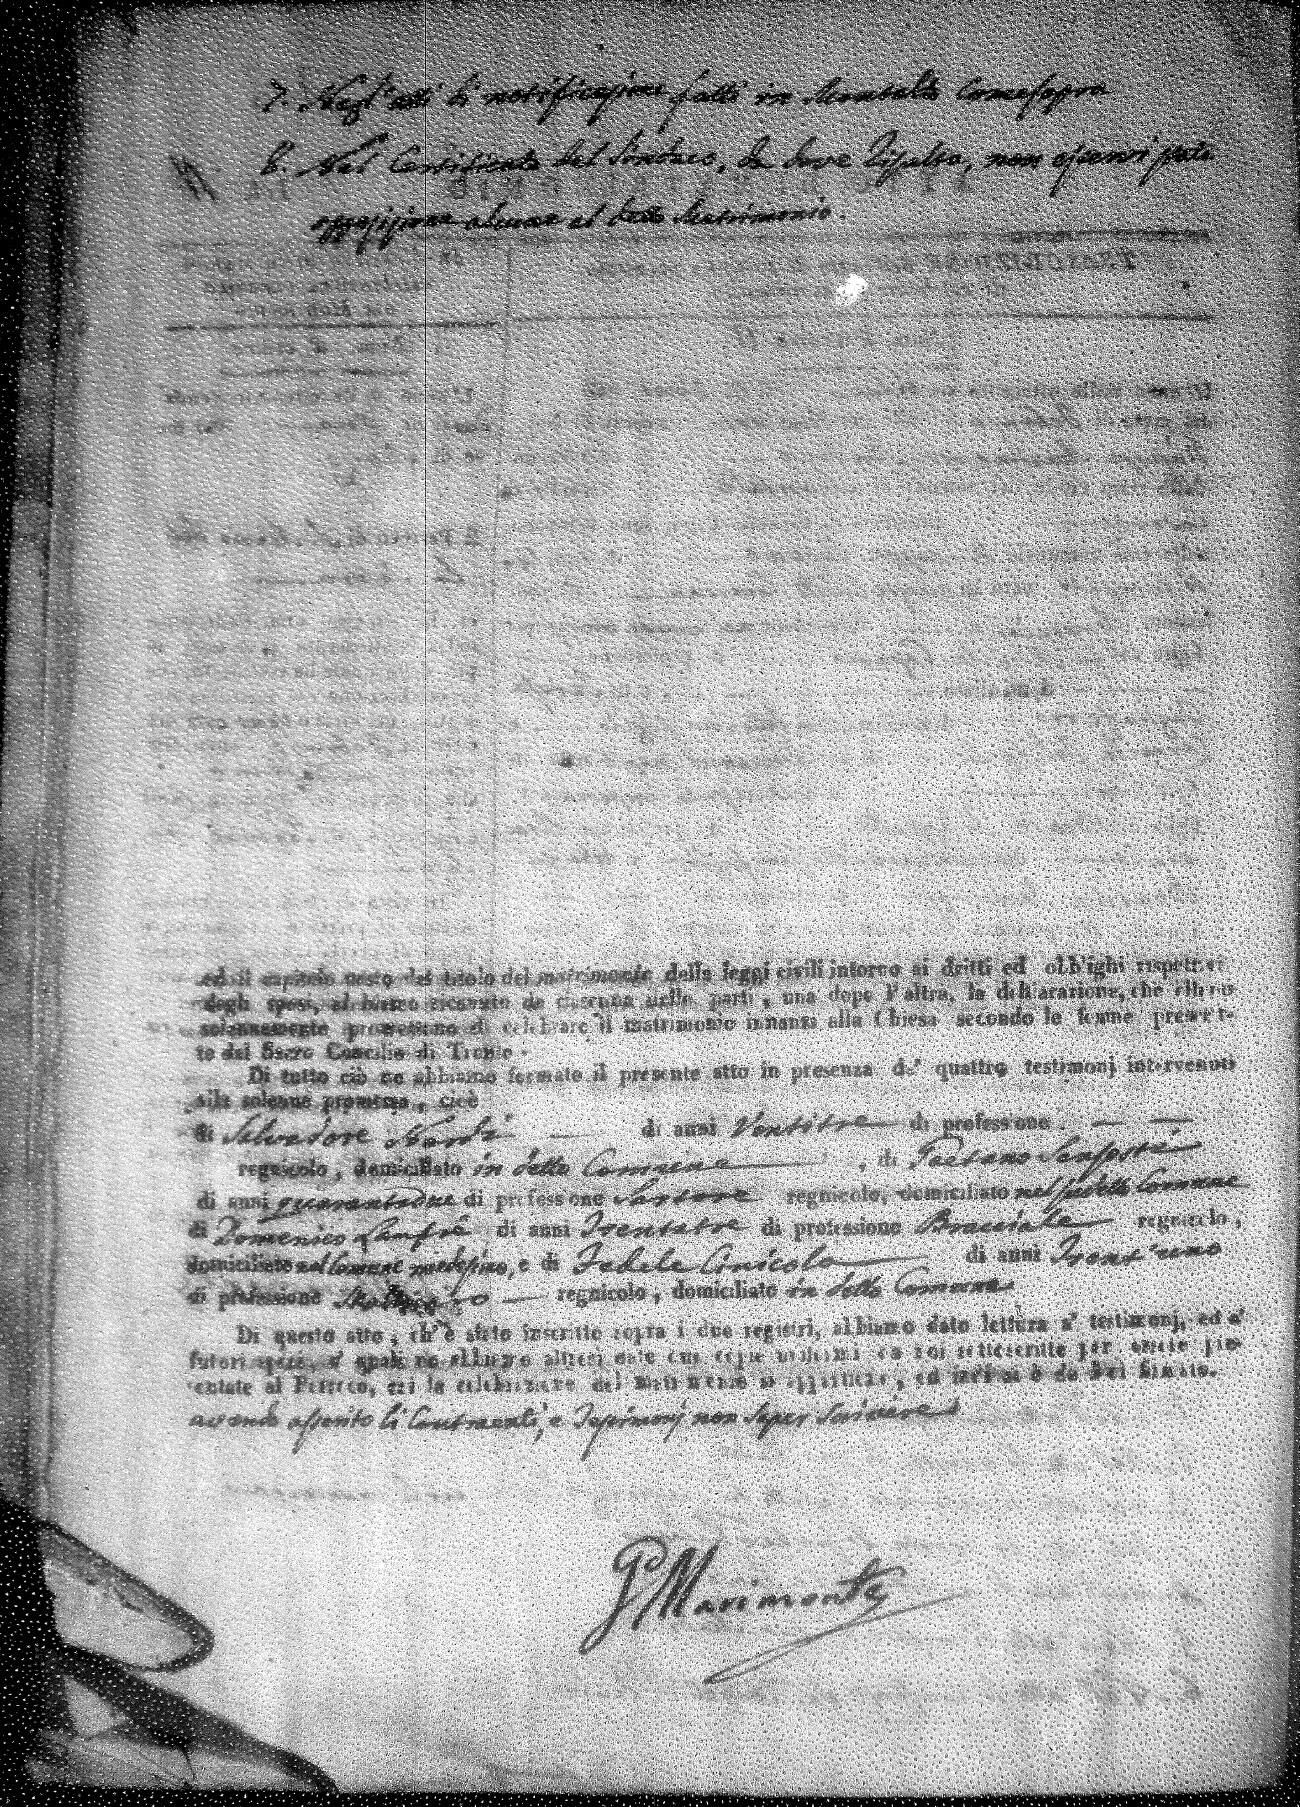 7. Negl'atti di notificazione fatti in Montalto Comesopra
8. Nel Certificato del Sindaco, da dove Risulta, non esservi stata
opposizione alcuna al detto Matrimonio.
ed il capitolo sesto del titolo del matrimonio delle leggi civili intorno ai dritti ed obblighi rispettivi
degli sposi, abbiamo ricevuto da ciascuna delle parti, una dopo l'altra, la dichiarazione, che elleno
solennemente promettono di celebrare il matrimonio innanzi alla Chiesa secondo le forme prescrit-
te dal Sacro Concilio di Trento.
Di tutto ciò ne abbiamo formato il presente atto in presenza de' quattro testimonj intervenuti
alla solenne promessa, cioè
di Salvadore di anni Ventitre di professione
regnicolo, domiciliato in detto Comune, di Gaetano
di anni quarantadue di professione Sartore regnicolo, domiciliato nel sudetto Comune
di Domenico di anni Trentatre di professione Bracciale regnicolo,
domiciliato nel Comune medesimo, e di Fedele di anni Trent'uno
di professione regnicolo, domiciliato in detto Comune
Di questo atto, ch'è stato inscritto sopra i due registri, abbiamo dato lettura a' testimonj, ed a'
futuri sposi, a' quali ne abbiamo altresì date due copie uniformi da noi sottoscritte per essere pre-
sentate al Parroco, cui la celebrazione del matrimonio si appartiene, ed indi si è da Noi firmato.
avendo asserito li Contraenti, e Testimonj non saper Scrivere